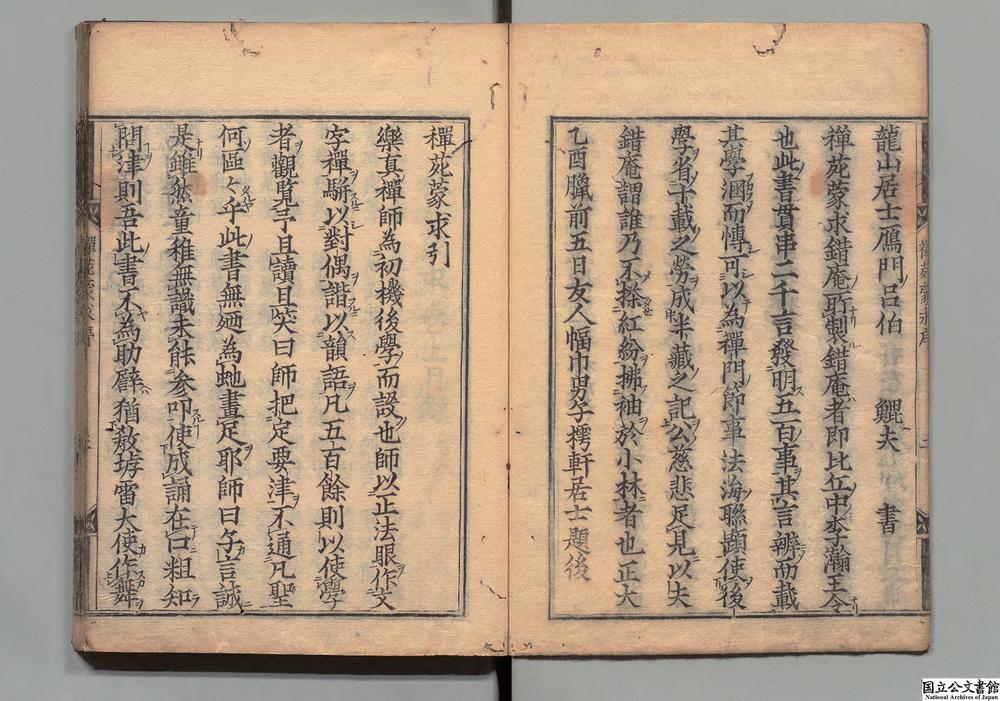 龍山居士鴈門呂伯　鯤夫　書
禪苑蒙求錯庵所製錯庵者即比丘中李瀚王令
也此書貫串二千言發明五百事其言辨而載
其學涵而博可以為禪門節事法海聯顕使後
學省十載之勞成半藏之記公慈悲足見以夫
錯庵謂誰乃不搽紅紛拂袖於小林者也正大
乙酉臘前五日友人幅巾男子樗軒居士題後
禪苑蒙求引
樂真禪師為初機後學而設也師以正法眼作文
字禪駢以對偶諧以韻語凡五百餘則以使學
者觀覽予且讀且笑曰師把定要津不通凡聖
何區々乎此書無廼為虵畫足耶師曰子言誠
是雖然童稚無識未能参叩使成誦在口粗知
問津則吾此書不為助屛猶敎坊雷大使作舞
国立公文書館
National Archives of Japan